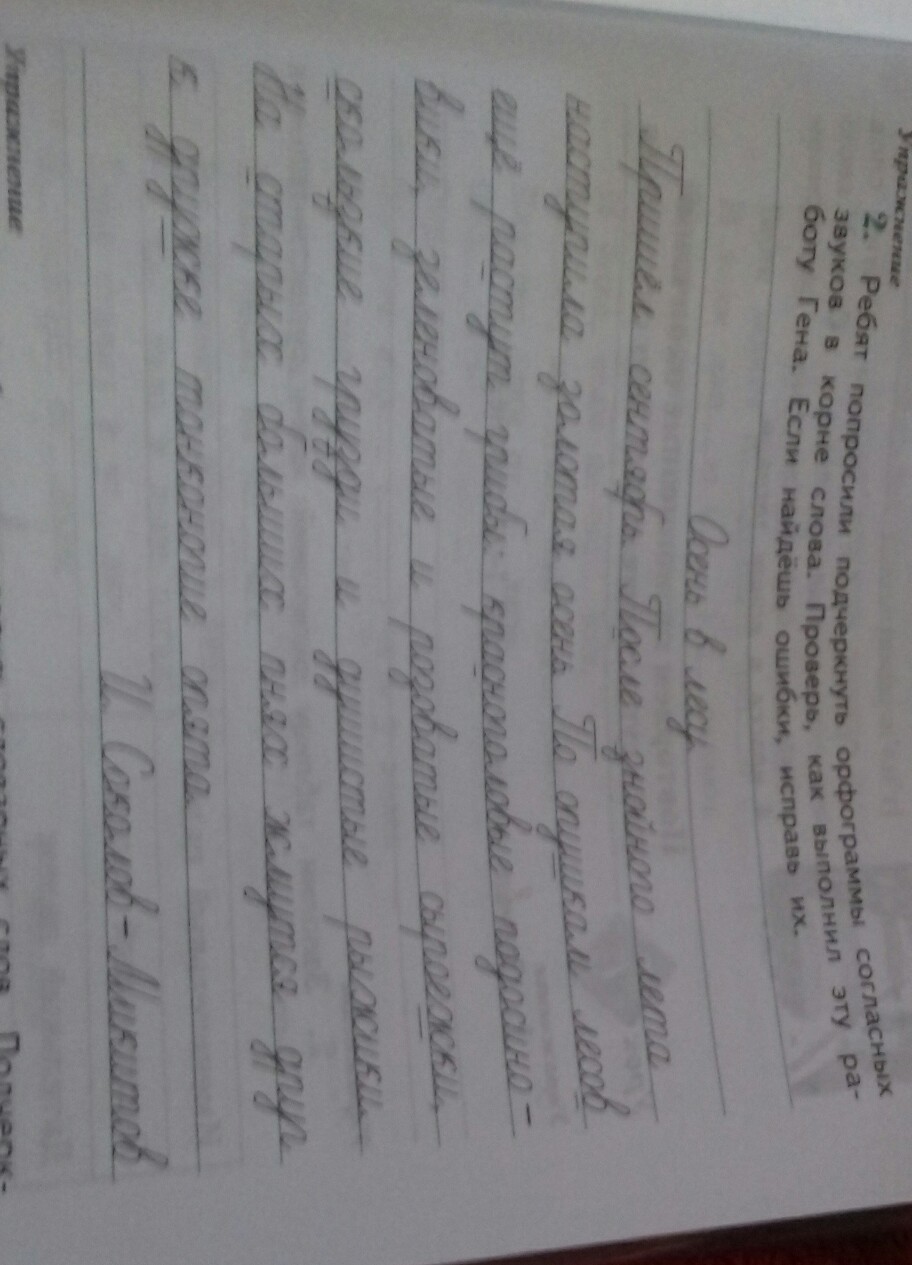 Упражнение
2. Ребят попросили подчеркнуть орфограммы согласных
звуков в корне слова. Проверь, как выполнил эту ра-
боту Гена. Если найдёшь ошибки, исправь их.
Осень в лесу
Пришёл сентябрь. После знойного лета
наступила золотая осень. По опушкам лесов
ещё растут грибы: красноголовые подосино-
вики, зеленоватые и розоватые сыроежки,
скользкие грузди и душистые рыжики.
На старых больших пнях жмутся друг
к дружке тонконогие опята.
И. Соколов-Микитов
Упражнение
слов. Подчерк-